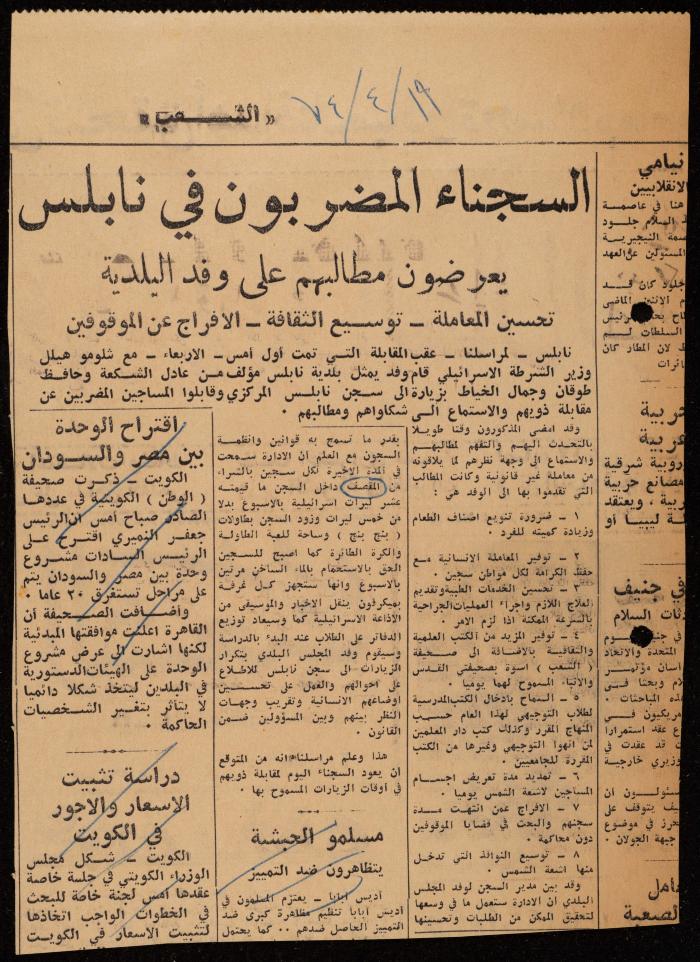 ١٩/٤/٧٤
«الشعب»
السجناء المضربون في نابلس
يعرضون مطالبهم على وفد البلدية
تحسين المعاملة ـ توسيع الثقافة ـ الافراج عن الموقوفين
نابلس ـ لمراسلنا ـ عقب المقابلة التي تمت أول أمس ـ الاربعاء ـ مع شلومو هيلل
وزير الشرطة الاسرائيلي قام وفد يمثل بلدية نابلس مؤلف من عادل الشكعة وحافظ
طوقان وجمال الخياط بزيارة الى سجن نابلس المركزي وقابلوا المساجين المضربين عن
مقابلة ذويهم والاستماع الى شكاواهم ومطالبهم .
وقد امضى المذكورون وقتا طويلا
بالتحدث اليهم والتفهم لمطالبهم
والاستماع الى وجهة نظرهم لما يلاقونه
من معاملة غير قانونية وكانت المطالب
التي تقدموا بها الى الوفد هي :
١ ـ ضرورة تنويع اصناف الطعام
وزيادة كميته للفرد .
٢ ـ توفير المعاملة الانسانية مع
حفظ الكرامة لكل مواطن سجين .
٣ ـ تحسين الخدمات الطبية وتقديم
العلاج اللازم واجراء العمليات الجراحية
بالسرعة الممكنة اذا لزم الامر .
٤ ـ توفير المزيد من الكتب العلمية
والثقافية بالاضافة الى صحيفة
( الشعب ) اسوة بصحيفتي القدس
والأنباء المسموح لهما يوميا .
٥ ـ السماح بادخال الكتب المدرسية
لطلاب التوجيهي لهذا العام حسب
المنهاج المقرر وكذلك كتب دار المعلمين
لمن انهوا التوجيهي وغيرها من الكتب
المقررة للجامعيين .
٦ ـ تمديد مدة تعريض اجسام
المساجين لاشعة الشمس يوميا .
٧ ـ الافراج عمن انتهت مدة
سجنهم والبحث في قضايا الموقوفين
دون محاكمة .
٨ ـ توسيع النوافذ التي تدخل
منها اشعة الشمس .
وقد بين مدير السجن لوفد المجلس
البلدي ان الادارة ستعمل ما في وسعها
لتحقيق الممكن من الطلبات وتحسينها
بقدر ما تسمح به قوانين وانظمة
السجون مع العلم ان الادارة سمحت
في المدة الاخيرة لكل سجين بالشراء
من المقصف داخل السجن ما قيمته
عشر ليرات اسرائيلية بالاسبوع بدلا
من خمس ليرات وزود السجن بطاولات
( بنج بنج ) وساحة للعبة الطاولة
والكرة الطائرة كما اصبح للسجين
الحق بالاستحمام بالماء الساخن مرتين
بالاسبوع وانها ستجهز كل غرفة
بميكرفون ينقل الاخبار والموسيقى من
الاذاعة الاسرائيلية كما وسيعاد توزيع
الدفاتر على الطلاب عند البدء بالدراسة
وسيقوم وفد المجلس البلدي بتكرار
الزيارات الى سجن نابلس للاطلاع
على احوالهم والعمل على تحسين
اوضاعهم الانسانية وتقريب وجهات
النظر بينهم وبين المسؤولين ضمن
القانون .
هذا وعلم مراسلنا انه من المتوقع
أن يعود السجناء اليوم لمقابلة ذويهم
في أوقات الزيارات المسموح بها .
مسلمو الحبشة
يتظاهرون ضد التمييز
أديس أبابا ـ يعتزم المسلمون في
أديس أبابا تنظيم مظاهرة كبرى ضد
التمييز الحاصل ضدهم . . كما يحتمل
اقتراح الوحدة
بين مصر والسودان
الكويت ـ ذكرت صحيفة
( الوطن ) الكويتية في عددها
الصادر صباح أمس ان الرئيس
جعفر النميري اقترح على
الرئيس السادات مشروع
وحدة بين مصر والسودان يتم
على مراحل تستغرق ٢٠ عاما .
وأضافت الصحيفة أن
القاهرة اعلنت موافقتها المبدئية
لكنها اشارت الى عرض مشروع
الوحدة على الهيئات الدستورية
في البلدين ليتخذ شكلا دائميا
لا يتأثر بتغير الشخصيات
الحاكمة .
دراسة تثبيت
الاسعار والاجور
في الكويت
الكويت ـ شكل مجلس
الوزراء الكويتي في جلسة خاصة
عقدها أمس لجنة خاصة للبحث
في الخطوات الواجب اتخاذها
لتثبيت الاسعار في الكويت
نيامي
الانقلابيين
هنا في عاصمة
السلام جلود
المسئولين عن العهد
جلود كان قد
السلطات لم
لان المطار كان
حربية
مصانع حربية
ويعتقد
ليبيا أو
في جنيف
السلام